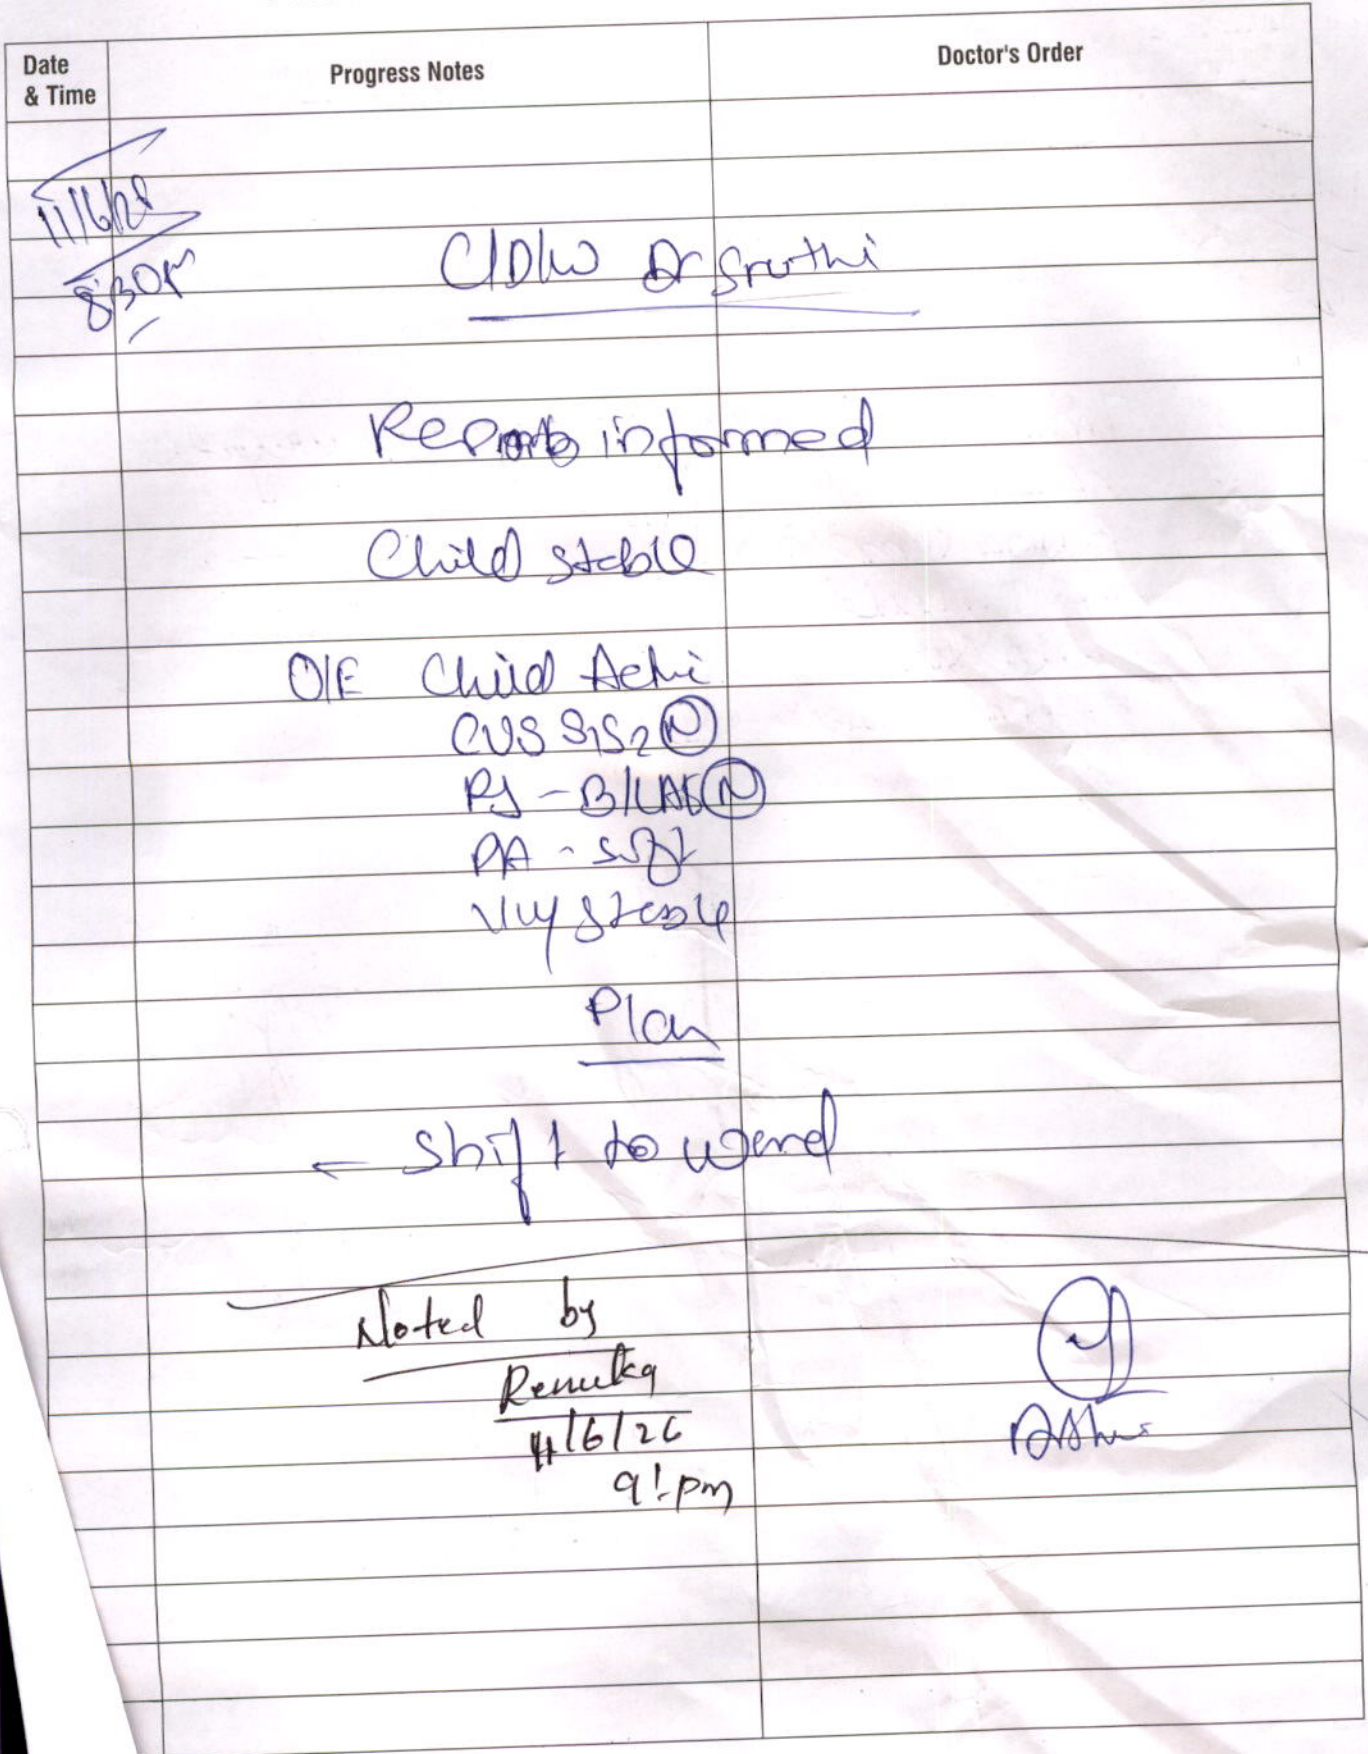 Date
& Time
Progress Notes
Doctor's Order
11/6/26
8:30pm
C/D/W Dr Sruthi
Reports informed
Child stable
O/E Child Active
CVS S1S2 (N)
RS - B/L AE (N)
PA - soft
Vitally stable
Plan
- Shift to ward
Noted by
Renuka
11/6/26
9:pm